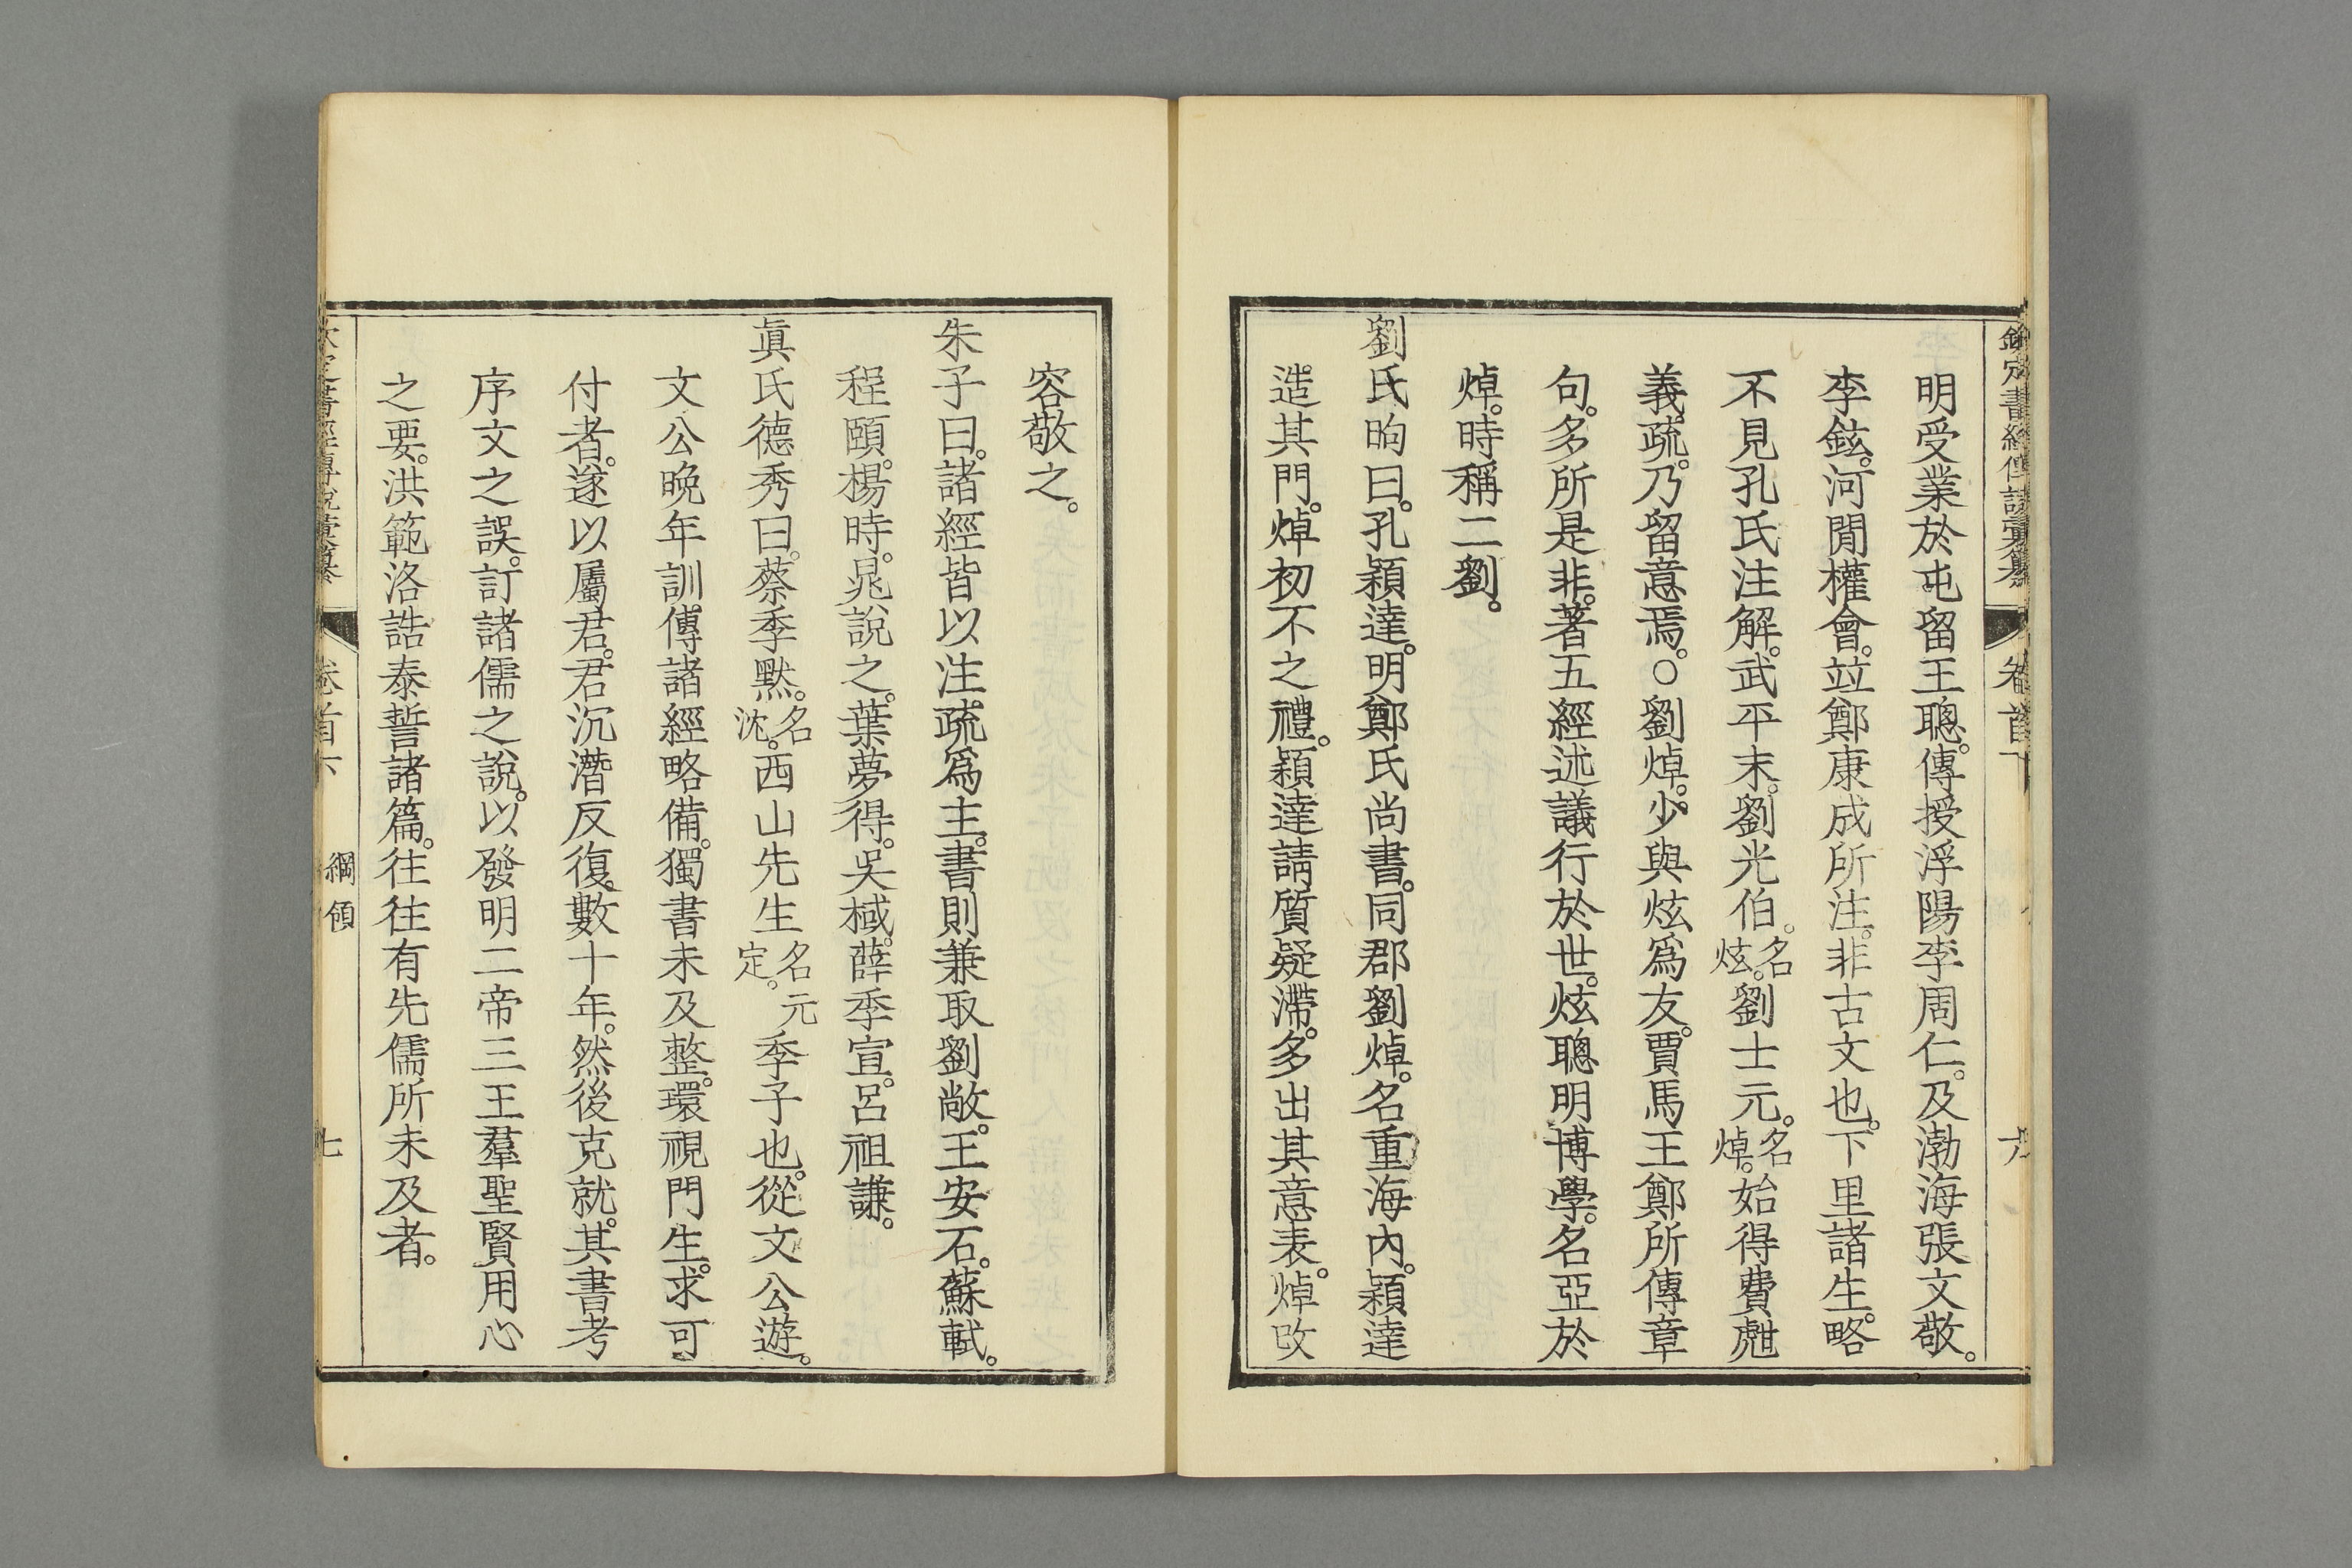 欽定書經傳說彙纂 卷首下 六
明受業於屯留王聰。傳授浮陽李周仁。及渤海張文敬。
李鉉。河閒權會。竝鄭康成所注。非古文也。下里諸生。略
不見孔氏注解。武平末。劉光伯。名炫。劉士元。名焯。始得費甝
義疏。乃留意焉。○劉焯。少與炫爲友。賈馬王鄭所傳章
句。多所是非。著五經述議行於世。炫聰明博學。名亞於
焯。時稱二劉。
劉氏昫曰。孔穎達。明鄭氏尚書。同郡劉焯。名重海內。穎達
造其門。焯初不之禮。穎達請質疑滯。多出其意表。焯改
容敬之。
朱子曰。諸經皆以注疏爲主。書則兼取劉敞。王安石。蘇軾。
程頤。楊時。晁說之。葉夢得。吳棫。薛季宣。呂祖謙。
眞氏德秀曰。蔡季默。名沈。西山先生名元定。季子也。從文公遊。
文公晚年訓傳諸經略備。獨書未及整。環視門生。求可
付者。遂以屬君。君沉潛反復。數十年。然後克就。其書考
序文之誤。訂諸儒之說。以發明二帝三王羣聖賢用心
之要。洪範洛誥泰誓諸篇。往往有先儒所未及者。
欽定書經傳說彙纂 卷首下 綱領 七